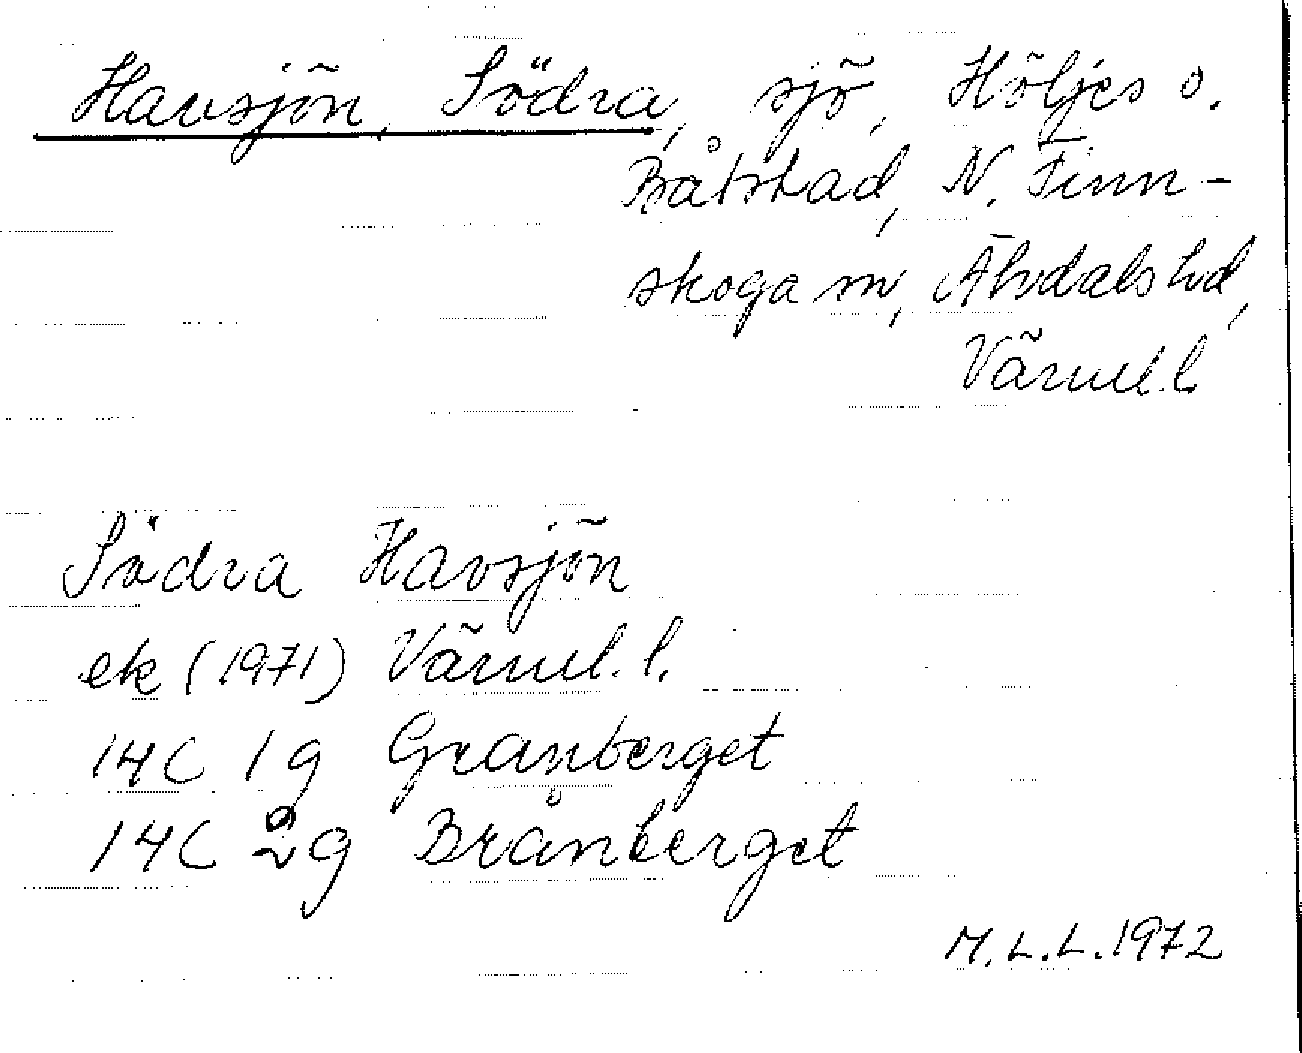 Havsjön, Södra, sjö, Höljes o.
Båtstad, N. Finn-
skoga sn, Älvdals hd,
Värml. l.
Södra Havsjön
ek (1971) Värml. l.
14C 1g Granberget
14C 2g Brånberget
M.L.L. 1972